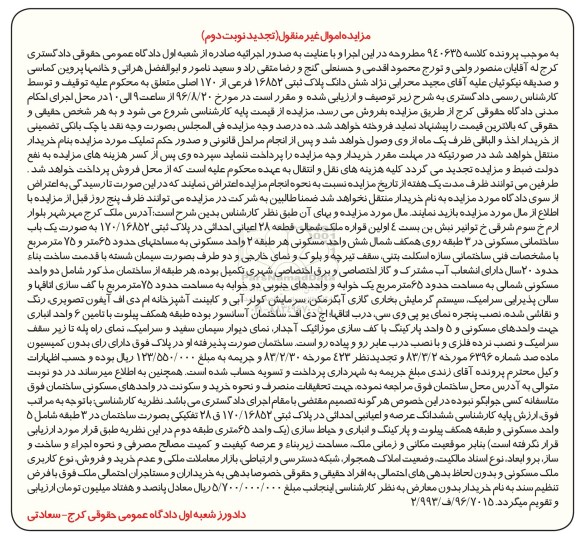 مزایده اموال غیر منقول(تجدید نوبت دوم)
به موجب پرونده کلاسه ۹۴۰۶۳۵ مطروحه در این اجرا و با عنایت به صدور اجرائیه صادره از شعبه اول دادگاه عمومی حقوقی دادگستری
کرج له آقایان منصور واحی و تورج محمود اقدمی و حسنعلی گنج و رضا متقی راد و سعید نامور و ابوالفضل هراتی و خانمها پروین کماسی
و صدیقه نیکوئیان علیه آقای مجید محرابی نژاد شش دانگ پلاک ثبتی ۱۶۸۵۲ فرعی از ۱۷۰ اصلی متعلق به محکوم علیه توقیف و توسط
کارشناس رسمی دادگستری به شرح زیر توصیف و ارزیابی شده و مقرر است در مورخ ۹۶/۸/۲۰ از ساعت ۹ الی ۱۰ در محل اجرای احکام
مدنی دادگاه حقوقی کرج از طریق مزایده بفروش می رسد، مزایده از قیمت پایه کارشناسی شروع می شود و به هر شخص حقیقی و
حقوقی که بالاترین قیمت را پیشنهاد نماید فروخته خواهد شد. ده درصد وجه مزایده فی المجلس بصورت وجه نقد یا چک بانکی تضمینی
از خریدار اخذ و الباقی ظرف یک ماه از وی وصول خواهد شد و پس از انجام مراحل قانونی و صدور حکم تملیک مورد مزایده بنام خریدار
منتقل خواهد شد در صورتیکه در مهلت مقرر خریدار وجه مزایده را پرداخت ننماید سپرده وی پس از کسر هزینه های مزایده به نفع
دولت ضبط و مزایده تجدید می گردد کلیه هزینه های نقل و انتقال به عهده محکوم علیه است که از محل فروش پرداخت خواهد شد .
طرفین می توانند ظرف مدت یک هفته از تاریخ مزایده نسبت به نحوه انجام مزایده اعتراض نمایند که در این صورت تا رسیدگی به اعتراض
از سوی دادگاه مورد مزایده به نام خریدار منتقل نخواهد شد ضمنا طالبین به شرکت در مزایده می توانند ظرف پنج روز قبل از مزایده با
اطلاع از مال مورد مزایده بازید نمایند. مال مورد مزایده و بهای آن طبق نظر کارشناس بدین شرح است:آدرس ملک کرج مهرشهر بلوار
ارم خ سوم شرقی خ توانیر نبش بن بست ٤ اولین قواره ملک شمالی قطعه ۲۸ اعیانی احداثی در پلاک ثبتی ۱۷۰/۱۶۸۵۲ به صورت یک باب
ساختمانی مسکونی در ۳ طبقه روی همکف شمال شش واحد مسکونی هر طبقه ۲ واحد مسکونی به مساحتهای حدود ۶۵متر و ۷۵ مترمربع
با مشخصات فنی ساختمانی سازه اسکلت بتنی، سقف تیرچه و بلوک و نمای خارجی و دو طرف بصورت سیمان شسته با قدمت ساخت بناء
حدود ۲۰سال دارای انشعاب آب مشترک و گاز اختصاصی و برق اختصاصی شهری یکمیل بوده، هر طبقه از ساختمان مذکور شامل دو واحد
مسکونی شمالی به مساحت حدود ۶۵مترمربع یک خوابه و واحدهای جنوبی دو خوابه به مساحت حدود ۷۵مترمربع با کف سازی اتاقها و
سالن پذیرایی سرامیک، سیستم گرمایش بخاری گازی آبگرمکن، سرمایش کولر آبی و کابینت آشپزخانه ام دی اف آیفون تصویری، رنگ
و نقاشی شده، نصب پنجره نمای یو پی وی سی، درب اتاقها: اچ دی اف، ساختمان آسانسور بوده طبقه همکف پیلوت با تامین ۶ واحد انباری
جهت واحدهای مسکونی و ۵ واحد پارکینگ با کف سازی موزائیک آجدار، نمای دیوار سیمان سفید و سرامیک، نمای راه پله تا زیر سقف
سرامیک و نصب نرده فلزی و با نصب درب عابر رو و پیاده رو است. ساختمان صورت پذیرفته او در پلاک فوق دارای رای بدون کمیسیون
ماده صد شماره ۶۳۹۶ مورخه ۸۳/۳/۲ و تجدیدنظر ۴۲۳ مورخه ۸۳/۲/۳۰ و جریمه به مبلغ ۱۲۳/۵۵۰/۰۰۰ ریال بوده و حسب اظهارات
وکیل محترم پرونده آقای زندی مبلغ جریمه به شهرداری پرداخت و تسویه حساب شده است. همچنین به اطلاع میرساند در دو نوبت
متوالی به آدرس محل ساختمان فوق مراجعه نموده، جهت تحقیقات منصرف و نحوه خرید و سکونت در واحدهای مسکونی ساختمان فوق
متاسفانه کسی جوابگو نبوده در این خصوص هر گونه تصمیم مقتضی با مقام اجرای دادگستری می باشد. نظریه کارشناسی: با توجه به مراتب
فوق، ارزش پایه کارشناسی ششدانگ عرصه و اعیانی احداثی در پلاک ثبتی ۱۷۰/۱۶۸۵۲ ق ۲۸ تفکیکی بصورت ساختمان در ۳ طبقه شامل ۵
واحد مسکونی و طبقه همکف پیلوت و پارکینگ و انباری و حیاط سازی (یک واحد ۶۵متری طبقه دوم در این نظریه طبق قرار مورد ارزیابی
قرار نگرفته است) بنابر موقعیت مکانی و زمانی ملک، مساحت زیربناء و عرصه کیفیت و کمیت مصالح مصرفی و نحوه اجراء و ساخت و
ساز، برو ابعاد، نوع اسناد مالکیت، وضعیت املاک همجوار، شبکه دسترسی و ارتباطی، بازار معاملات ملکی و عدم خرید و فروش، نوع کاربری
ملک مسکونی و بدون لحاظ بدهی های احتمالی به افراد حقیقی و حقوقی خصوصا بدهی به خریداران و مستاجران احتمالی ملک فوق با فرض
تنظیم سند به نام خریدار بدون معارض به نظر کارشناسی اینجانب مبلغ ۵/۷۰۰/۰۰۰/۰۰۰ ریال معادل پانصد و هفتاد میلیون تومان ارزیابی
و تقویم میگردد. ۹۶/۷۰۱۵/ف ۲/۹۹۳/
دادورز شعبه اول دادگاه عمومی حقوقی کرج- سعادتی